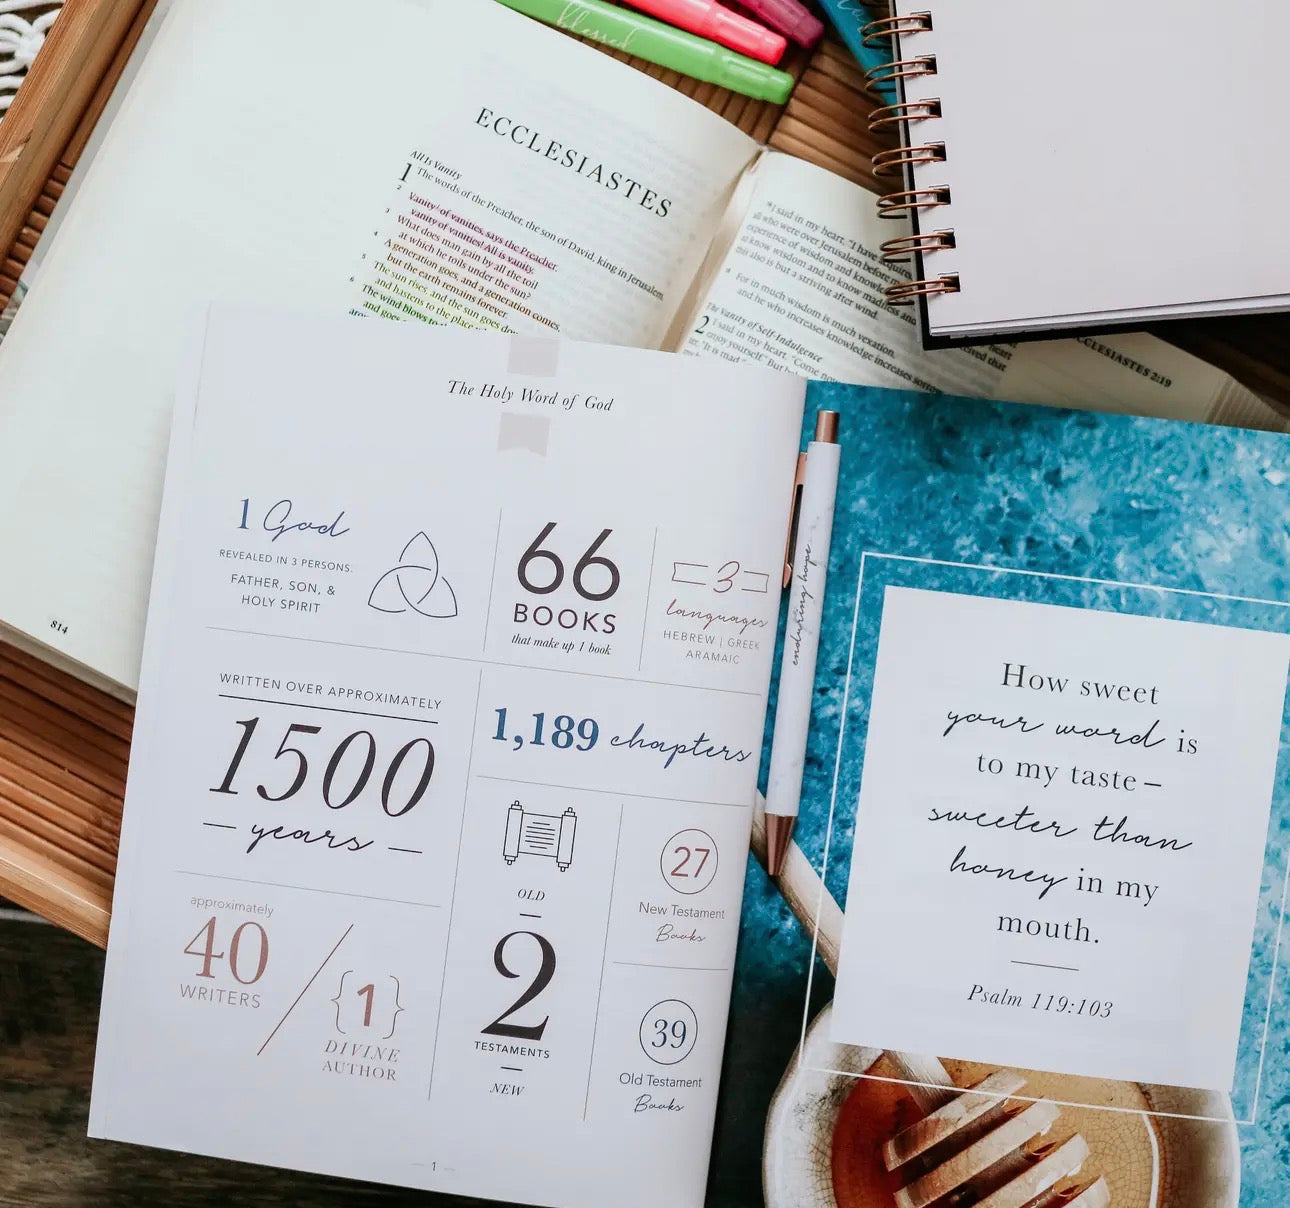 blessed
ECCLESIASTES
All Is Vanity
1 The words of the Preacher, the son of David, king in Jerusalem.
2 Vanity of vanities, says the Preacher,
vanity of vanities! All is vanity.
3 What does man gain by all the toil
at which he toils under the sun?
4 A generation goes, and a generation comes,
but the earth remains forever.
5 The sun rises, and the sun goes
and hastens to the place
6 The wind blows
and goes
814
"I said in my heart, "I have acquired
all who were over Jerusalem before
experience of wisdom and
to know wisdom and to know madness and
this also is but a striving after wind.
For in much wisdom is much vexation,
and he who increases knowledge increases
The Vanity of Self-Indulgence
2 I said in my heart, "Come now
enjoy yourself." But
"It is mad
heart
that
ECCLESIASTES 2:19
The Holy Word of God
1 God
REVEALED IN 3 PERSONS:
FATHER, SON, &
HOLY SPIRIT
66
BOOKS
that make up 1 book
3
languages
HEBREW | GREEK
ARAMAIC
WRITTEN OVER APPROXIMATELY
1500
years
1,189 chapters
approximately
40
WRITERS
{1}
DIVINE
AUTHOR
OLD
2
TESTAMENTS
NEW
27
New Testament
Books
39
Old Testament
Books
1
enduring hope
How sweet
your word is
to my taste–
sweeter than
honey in my
mouth.
Psalm 119:103